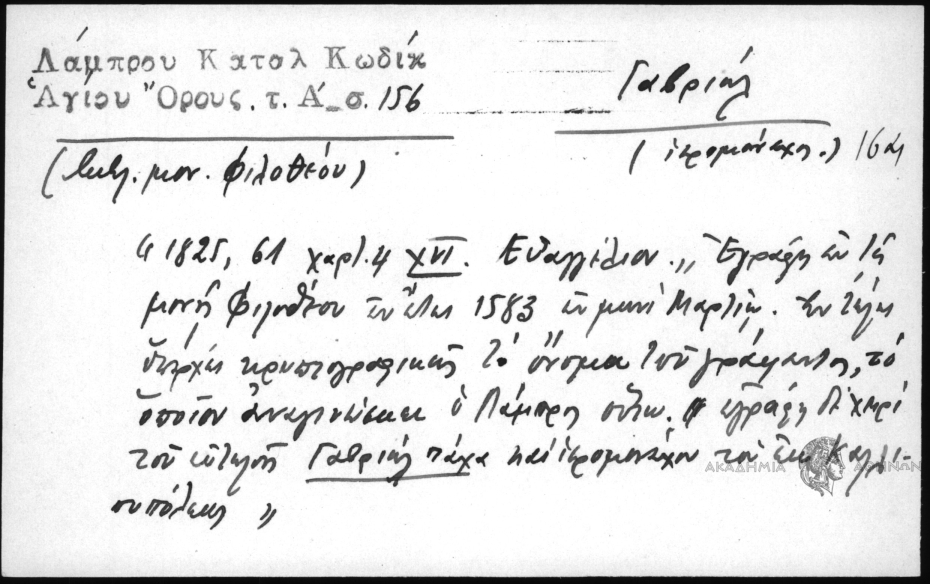 Λάμπρου Καταλ Κωδίκ
Ἁγίου Ὄρους. τ. Α΄ σ. 156
Γαβριήλ
(βιβλ. μον. Φιλοθέου)
(ἱερομόναχος.) 16
1825, 61 χαρτ. 4 XVI. Εὐαγγέλιον. „ Ἐγράφη ἐν τῇ
μονῇ Φιλοθέου ἐν ἔτει 1583 ἐν μηνὶ Μαρτίῳ. Ἐν τέλει
ὑπάρχει κρυπτογραφικῶς τὸ ὄνομα τοῦ γράψαντος, τὸ
ὁποῖον ἀναγινώσκει ὁ Λάμπρος οὕτω. „ ἐγράφη διὰ χειρὶ
τοῦ εὐτελοῦς Γαβριήλ τάχα καὶ ἱερομονάχου τοῦ ἐκ Καλλι-
ουπόλεως „
ΑΚΑΔΗΜΙΑ ΑΘΗΝΩΝ